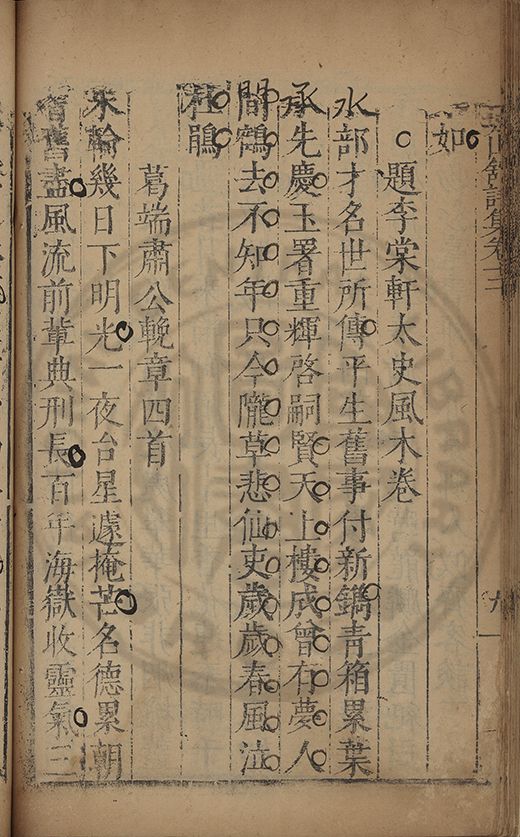 舒詩集卷三
如
題李棠軒太史風木卷
水部才名世所傳平生舊事付新鐫青箱累葉
承先慶玉署重輝啓嗣賢天上樓成曾有夢人
間鶴去不知年只今隴草悲仙吏歲歲春風泣
杜鵑
葛端肅公輓章四首
朱輪幾日下明光一夜台星遽掩芒名德累朝
舊盡風流前輩典刑長百年海嶽收靈氣三